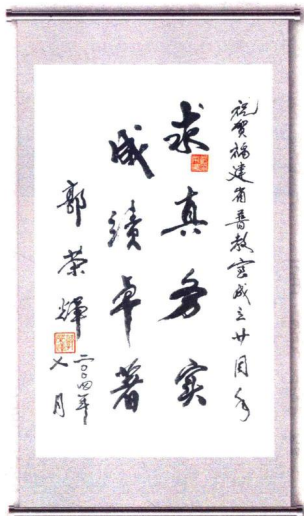 祝贺福建省普教室成立廿周年
求真务实
成绩卓著
郭荣辉
二〇〇四年
七月